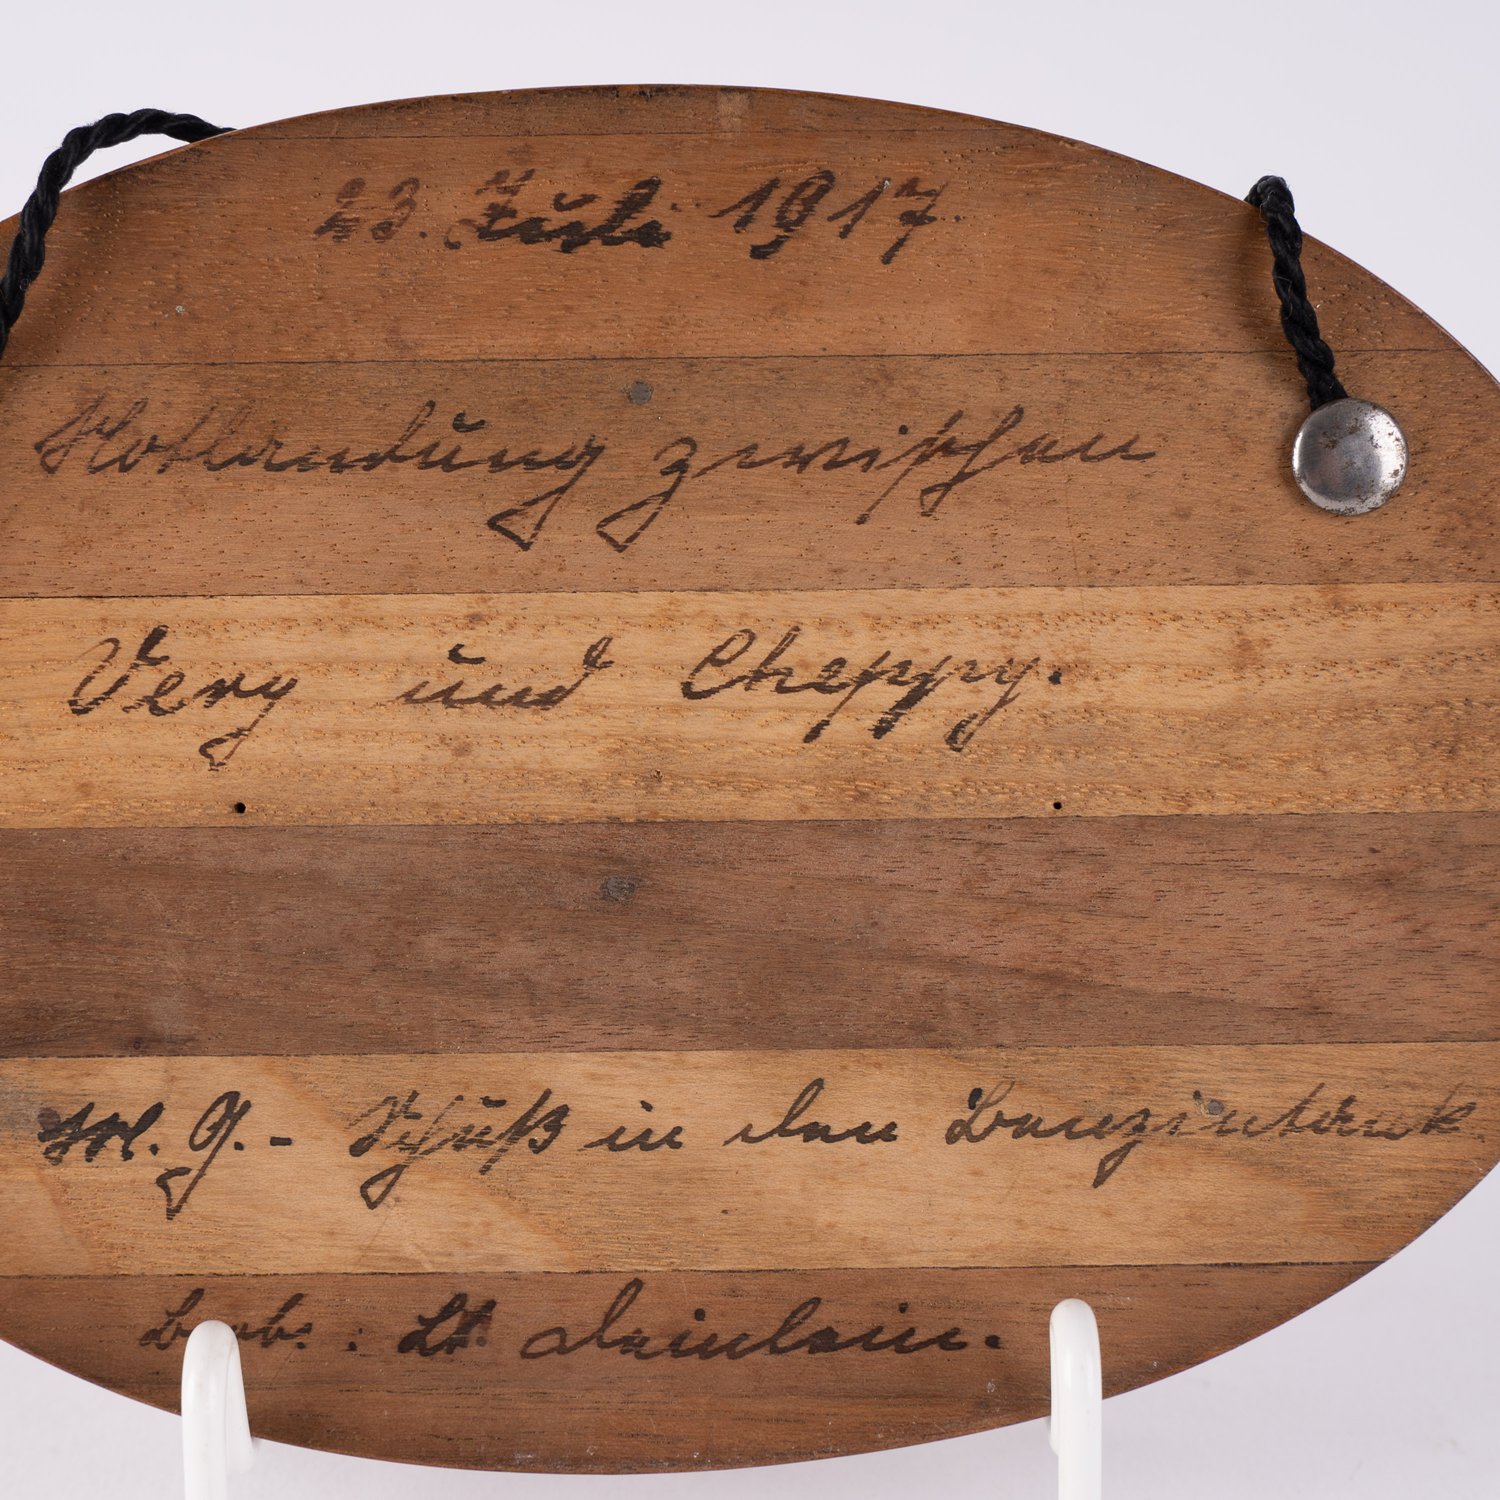 23. Juli 1917.
Notlandung zwischen
Very und Cheppy.
M. G. - Schuß in den Benzintank.
Beob. : Lt. Deinlein.